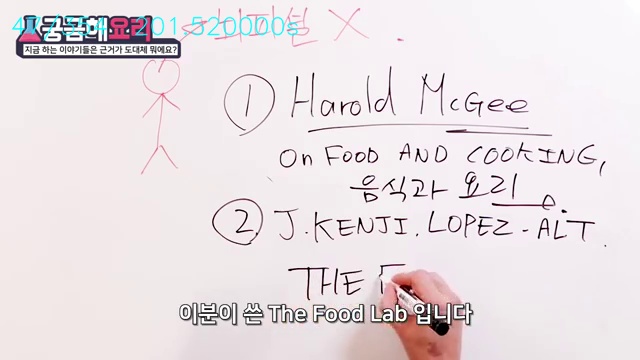 47/354 201.520000s
궁금해요리
지금 하는 이야기들은 근거가 도대체 뭐에요?
X.
① Harold McGee
ON FOOD AND COOKING,
음식과 요리.
② J.KENJI.LOPEZ-ALT.
THE F
이분이 쓴 The Food Lab 입니다